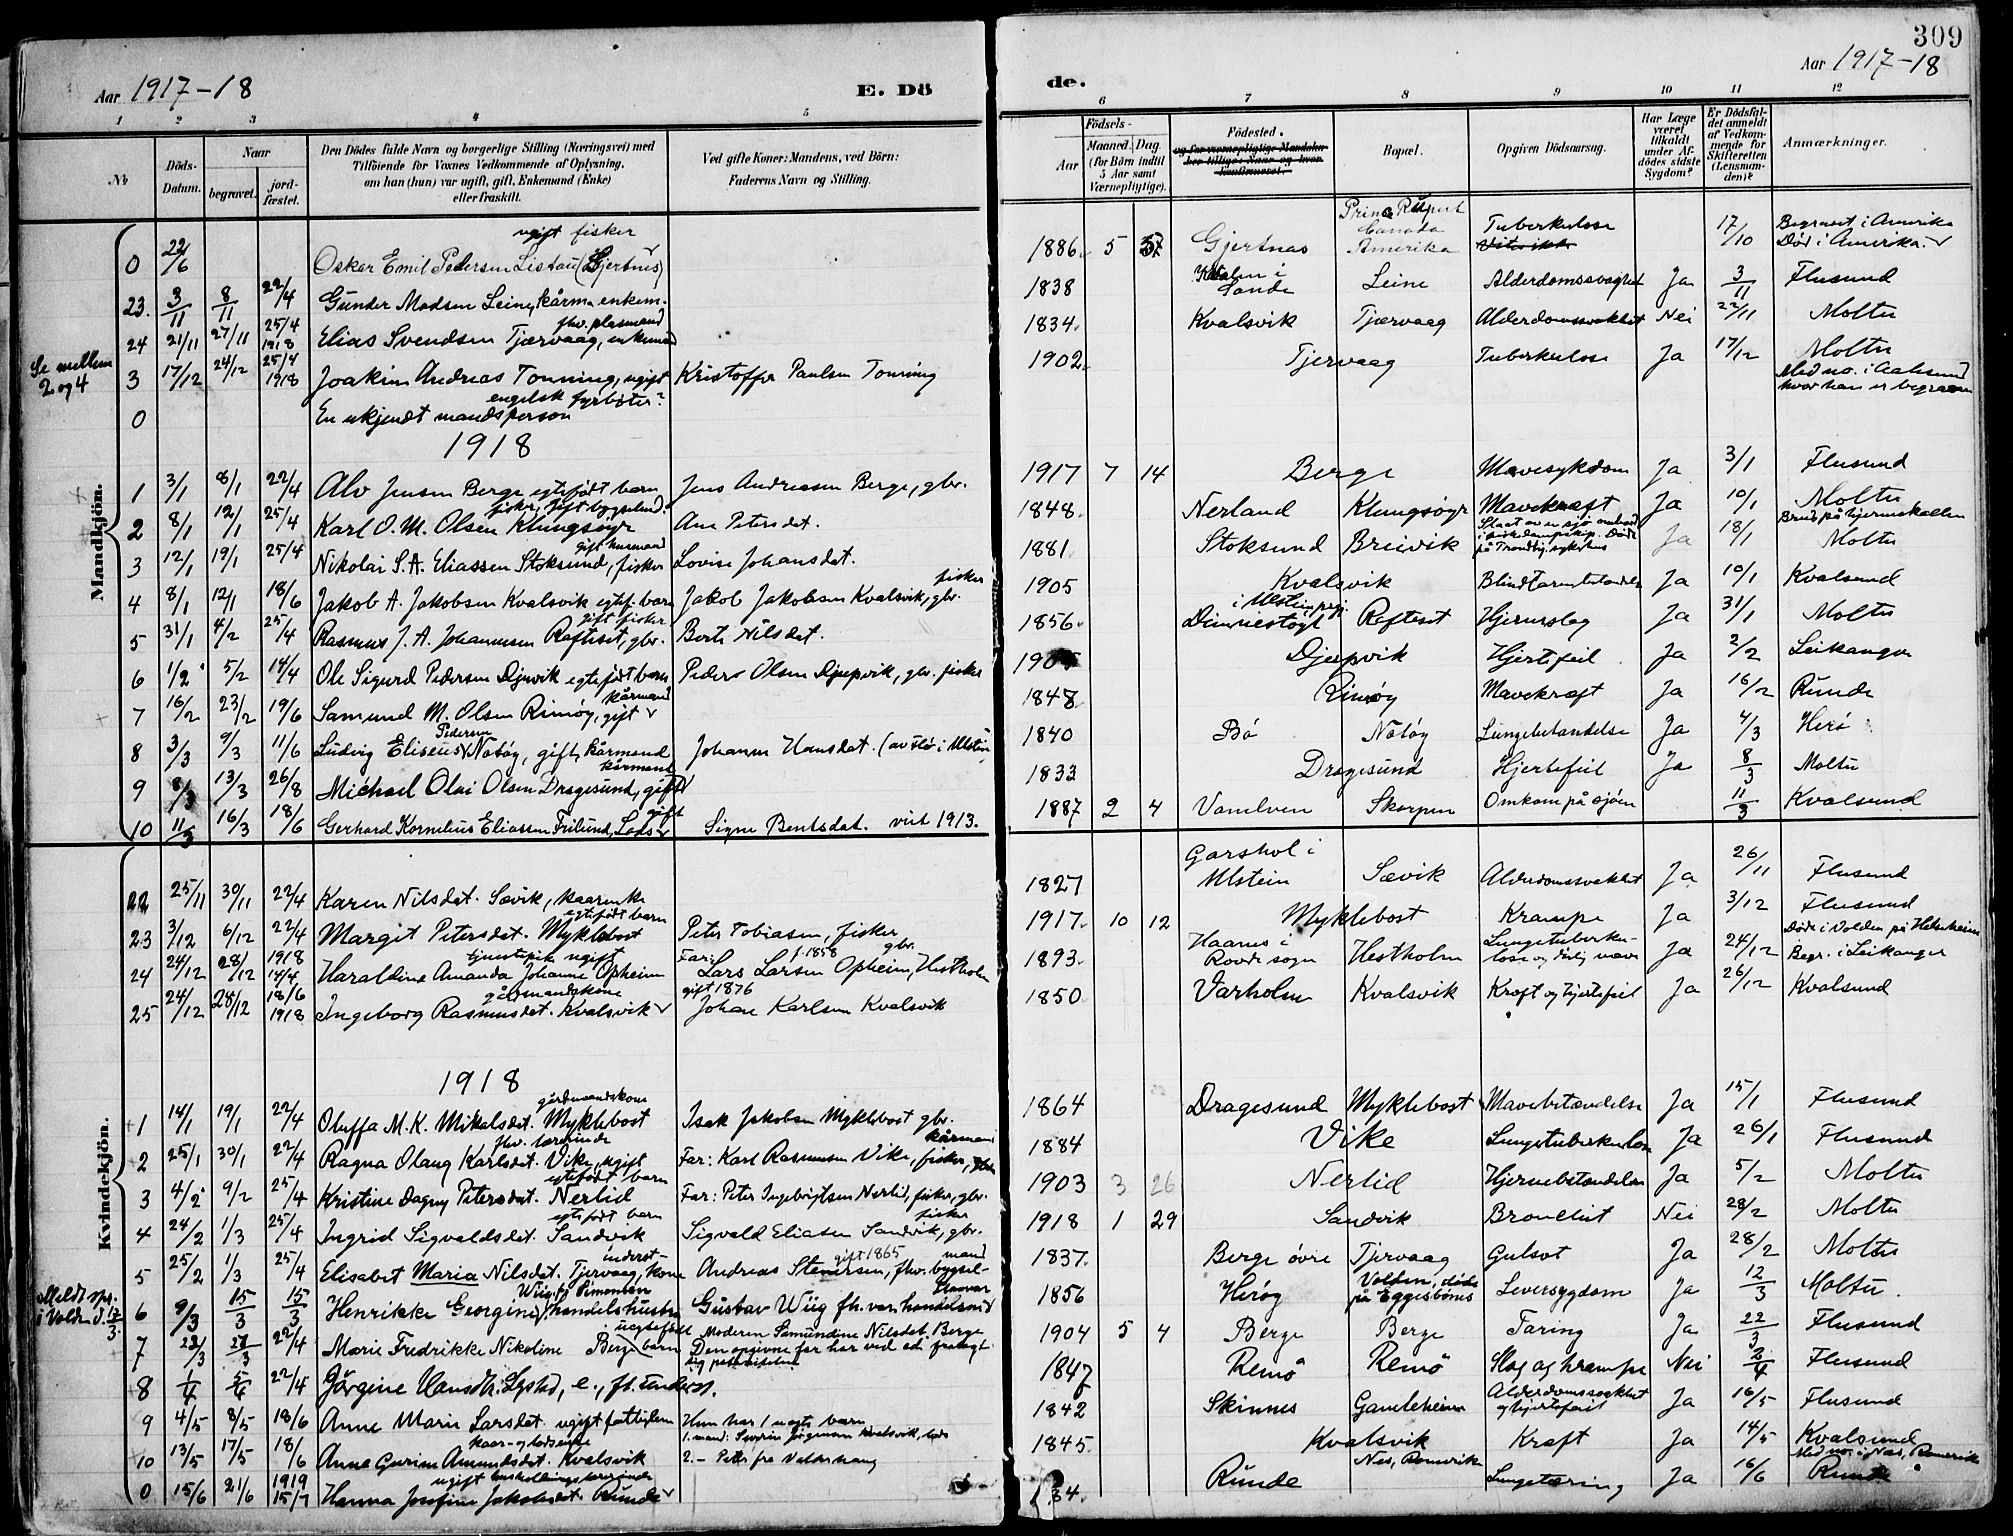 309
Aar 1917-18
E. Dö
de.
Aar 1917-18
1 2 3 4 5 6 7 8 9 10 11 12
№
Döds-Datum.
Naar
begravet.
jord-fæstet.
Den Dödes fulde Navn og borgerlige Stilling (Næringsvei) med
Tilföiende for Voxnes Vedkommende af Oplysning,
om han (hun) var ugift, gift, Enkemand (Enke)
eller fraskilt.
Ved gifte Koner: Mandens, ved Börn:
Faderens Navn og Stilling.
Födsels-
Aar
Maaned. Dag.
(for Börn indtil
5 Aar samt
Værnepligtige).
Födested.
og for værnepligtige Mandskaber tillige: Naar og hvor konfirmeret.
Bopæl.
Opgiven Dödsaarsag.
Har Læge været tilkaldt under Afdödes sidste Sygdom?
Er Dödsfaldet anmeldt af Vedkommende for Skifteretten (Lensmanden)?
Anmærkninger.
Mandkjön.
0 22/6 Oskar Emil Pedersen Listau (Gjertnes) ugift fisker 1886 5 Gjertnas Prince Rupert Canada Amerika Tuberkulose 17/10 Begravet i Amerika Död i Amerika.
23. 3/11 8/11 22/4 Gunder Madsen Leine, kårm. enkem. 1838 Sande Leine Alderdomssvaghet Ja 3/11 Flusund
24 21/11 27/11 25/4 1918 Elias Svendsen Tjærvaag, enkemand fhv. plasmand 1834. Kvalsvik Tjærvaag Alderdomssvakhet Nei 22/11 Moltu
Se mellem 2 og 4
3 17/12 24/12 25/4 1918 Joakim Andreas Tonning, ugift Kristoffer Paulsen Tonning 1902. Tjervaag Tuberkulose Ja 17/12 Moltu
Med no. i Aalesund hvor han er begraven
0 En ukjendt mandsperson engelsk fyrböter?
1918
1 3/1 8/1 22/4 Alv Jensen Berge egtefödt barn Jens Andreasen Berge, gbr. 1917 7 14 Berge Mavesykdom Ja 3/1 Flusund
2 8/1 12/1 25/4 Karl O. M. Olsen Klungsöyr fisker, gift bygselmd. Ane Petersdat. 1848. Nerland Klungsöyr Mavekræft Ja 10/1 Moltu
3 12/1 19/1 25/4 Nikolai S. A. Eliassen Stoksund, fisker gift husmand Lovise Johansdat. 1881. Stoksund Breivik Ja 18/1 Brud på hjerneskallen Moltu
4 8/1 12/1 18/6 Jakob A. Jakobsen Kvalsvik egtef. barn Jakob Jakobsen Kvalsvik, gbr. fisker 1905 Kvalsvik Blindtarmbetændelse Ja 10/1 Kvalsund
5 31/1 4/2 25/4 Rasmus J. A. Johannesen Rafteset, gbr. gift fisker Berte Nilsdat. 1856. Dimnestøgl i Ulstein prgj. Rafteset Hjerneslag Ja 31/1 Moltu
6 1/2 5/2 14/4 Ole Sigurd Pedersen Djupvik egtefödt barn Peder Olsen Djupvik, gbr. fisker Djupvik Hjertefeil Ja 2/2 Leikanger
7 16/2 23/2 19/6 Samund M. Olsen Rimöy, gift kårmand 1847 Rimöy Mavekræft Ja 16/2 Runde
8 3/3 9/3 11/6 Ludvig Eliseus Pedersen Notöy, gift, kårmand Johanne Hansdat. (av Flö i Ulstein 1840 Bö Notöy Lungebetændelse Ja 4/3 Herö
9 8/3 13/3 26/8 Michael Olai Olsen Dragesund, gift kårmand 1833 Dragesund Hjertefeil Ja 8/3 Moltu
10 11/3 16/3 18/6 Gerhard Kornelius Eliassen Frilund, Lods gift Signe Bentsdat. viet 1913. 1887 2 4 Vanelven Skorpen Omkom på sjöen 11/3 Kvalsund
Kvindekjön.
22 25/11 30/11 22/4 Karen Nilsdat. Sævik, kaarenke 1827 Garshol i Ulstein Sævik Alderdomssvakhet Ja 26/11 Flusund
23 3/12 6/12 22/4 Margit Petersdat. Myklebost egtefödt barn Peter Tobiasen, fisker 1917. 10 12 Myklebost Krampe Ja 3/12 Flusund
24 24/12 28/12 1918 14/4 Haraldine Amanda Johanne Opheim tjenestepike ugift Far: Lars Larsen Opheim, Hestholm f. 1858 gbr. 1893. Haanes i Rovde sogn Hestholm Ja 24/12 Begr. i Leikanger
25 24/12 28/12 18/6 1918 Ingeborg Rasmusdat. Kvalsvik gårdmandskone gift 1876 Johan Karlsen Kvalsvik 1850. Varholm Kvalsvik Kræft og hjertefeil Ja 26/12 Kvalsund
1918
1 14/1 19/1 22/4 Oluffa M. K. Mikalsdat. Myklebost gårdmandskone Isak Jakobsen Myklebost gbr. 1864 Dragesund Myklebost Mavebetændelse Ja 15/1 Flusund
2 25/1 30/1 22/4 Ragna Olaug Karlsdat. Vike, ugift fhv. lærerinde Far: Karl Rasmussen Vike, fisker, kårmand 1884 Vike Lungetuberkulose Ja 26/1 Flusund
3 4/2 9/2 25/4 Kristine Dagny Petersdat. Nerlid egtefödt barn Far: Peter Ingebrigtsen Nerlid, fisker, gbr. 1903 3 26 Nerlid Hjernebetændelse Ja 5/2 Moltu
4 24/2 1/3 25/4 Ingrid Sigvaldsdat. Sandvik egtefödt barn Sigvald Eliasen Sandvik, gbr. fisker 1918 1 29 Sandvik Bronchit Nei 28/2 Moltu
5 25/2 1/3 25/4 Elisabet Maria Nilsdat. Tjervaag, kone inderst- gift 1865 Andreas Stenersen, fhv. bygselmand 1837. Berge övre Tjervaag Gulsot Ja 28/2 Moltu
6 9/3 15/3 15/3 Henrikke Georgine Wiig f. Simonsen handelshustru Gustav Wiig fh. var. handelsmd 1856 Heröy Volden, döde på Eggesbönes Leversygdom Ja 12/3 Moltu.
7 22/3 27/3 22/4 Marie Fredrikke Nikoline Berge uegtefödt barn Moderen Semundine Nilsdat. Berge Den opgivne far har ved ed fralagt sig paterniteten 1904 5 4 Berge Berge Tæring Ja 22/3 Flusund
8 1/4 5/4 22/4 Jörgine Hansdtr. Systad, e., fl. underst. 1847 Remö Remö Slag og krampe Nei 2/4 Flusund
9 4/5 8/5 18/6 Anne Marie Larsdat. ugift fattiglem Hun har 1 uegte barn 1842 Skinnes Gamleheimen Alderdomssvakhet og hjertefeil Ja 16/5 Flusund
10 13/5 17/5 18/6 Anne Gurine Amundsdat. Kvalsvik kaar- og lodsenke 1. mand: Severin Jörgensen Kvalsvik, lods 2. - Peter fra Valderhaug 1845. Kvalsvik Kræft Ja 14/5 Kvalsund
0 15/6 21/6 1919 15/7 Hanna Josefine Jakobsdat. Runde ugift husholdningslærerinde Runde Nes, Romerike Lungetæring Ja 16/6 Med no. i Nes, Romerike Runde